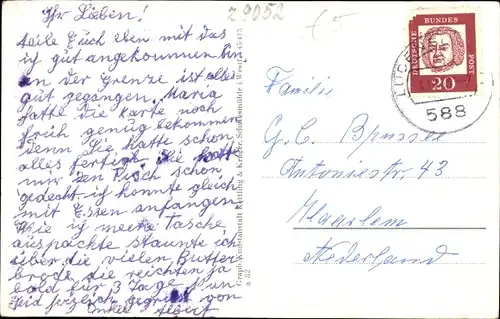 Ihr Lieben!
teile Euch eben mit das
ich gut angekommen bin
an der Grenze ist alles
gut gegangen. Maria
hatte die Karte noch
früh genug bekommen
denn Sie hatte schon
alles fertig. Sie hatte
mir den Tisch schon
gedeckt ich konnte gleich
mit Essen anfangen
Wie ich meine Tasche
auspackte staunte ich
über die vielen Butter
brode die reichten ja
bald für 3 Tage
seid herzlich gegrüßt von
Onkel Albert
Z 9052
DEUTSCHE BUNDESPOST
20
588
Familie
G.C.
Antoniestr 43
Haarlem
Nederland